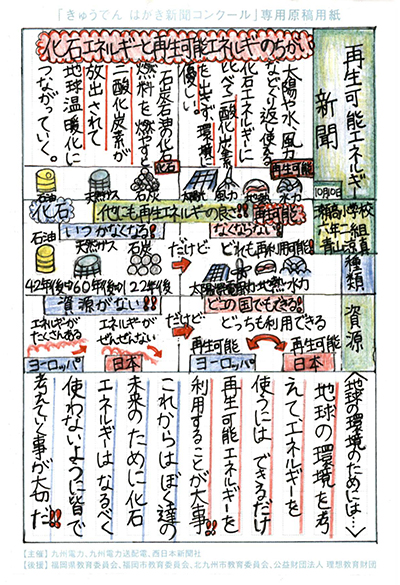 「きゅうでん はがき新聞コンクール」専用原稿用紙
再生可能エネルギー
新聞
10月10日
六年二組
化石エネルギーと再生可能エネルギーのちがい
太陽や水、風力
などくり返し使える
化石エネルギーに
比べて二酸化炭素
を出さず、環境に
優しい。
再生可能
石炭石油の化石
燃料を燃やすと
二酸化炭素が
放出されて
地球温暖化に
つながっていく。
化石
石油
天然ガス
石炭
太陽光
風力
地熱
水力
種類
他にも再生エネルギーの良さ!!
化石
いつかなくなる!
石油
天然ガス
石炭
42年後
60年後
122年後
だけど…
再生可能
なくならない!
どれも再利用可能!
太陽光
風力
地熱
水力
資源
資源がない!!
エネルギーが
たくさんある
ヨーロッパ
エネルギーが
ぜんぜんない
日本
だけど…
どこの国でもできる!
どっちも利用できる
再生可能
ヨーロッパ
再生可能
日本
〈地球の環境のためには…〉
地球の環境を考
えてエネルギーを
使うには できるだけ
再生可能エネルギーを
利用することが大事!!
これからはぼく達の
未来のために化石
エネルギーはなるべく
使わないように皆で
考えていく事が大切だ!!
【主催】九州電力、九州電力送配電、西日本新聞社
【後援】福岡県教育委員会、福岡市教育委員会、北九州市教育委員会、公益財団法人 理想教育財団